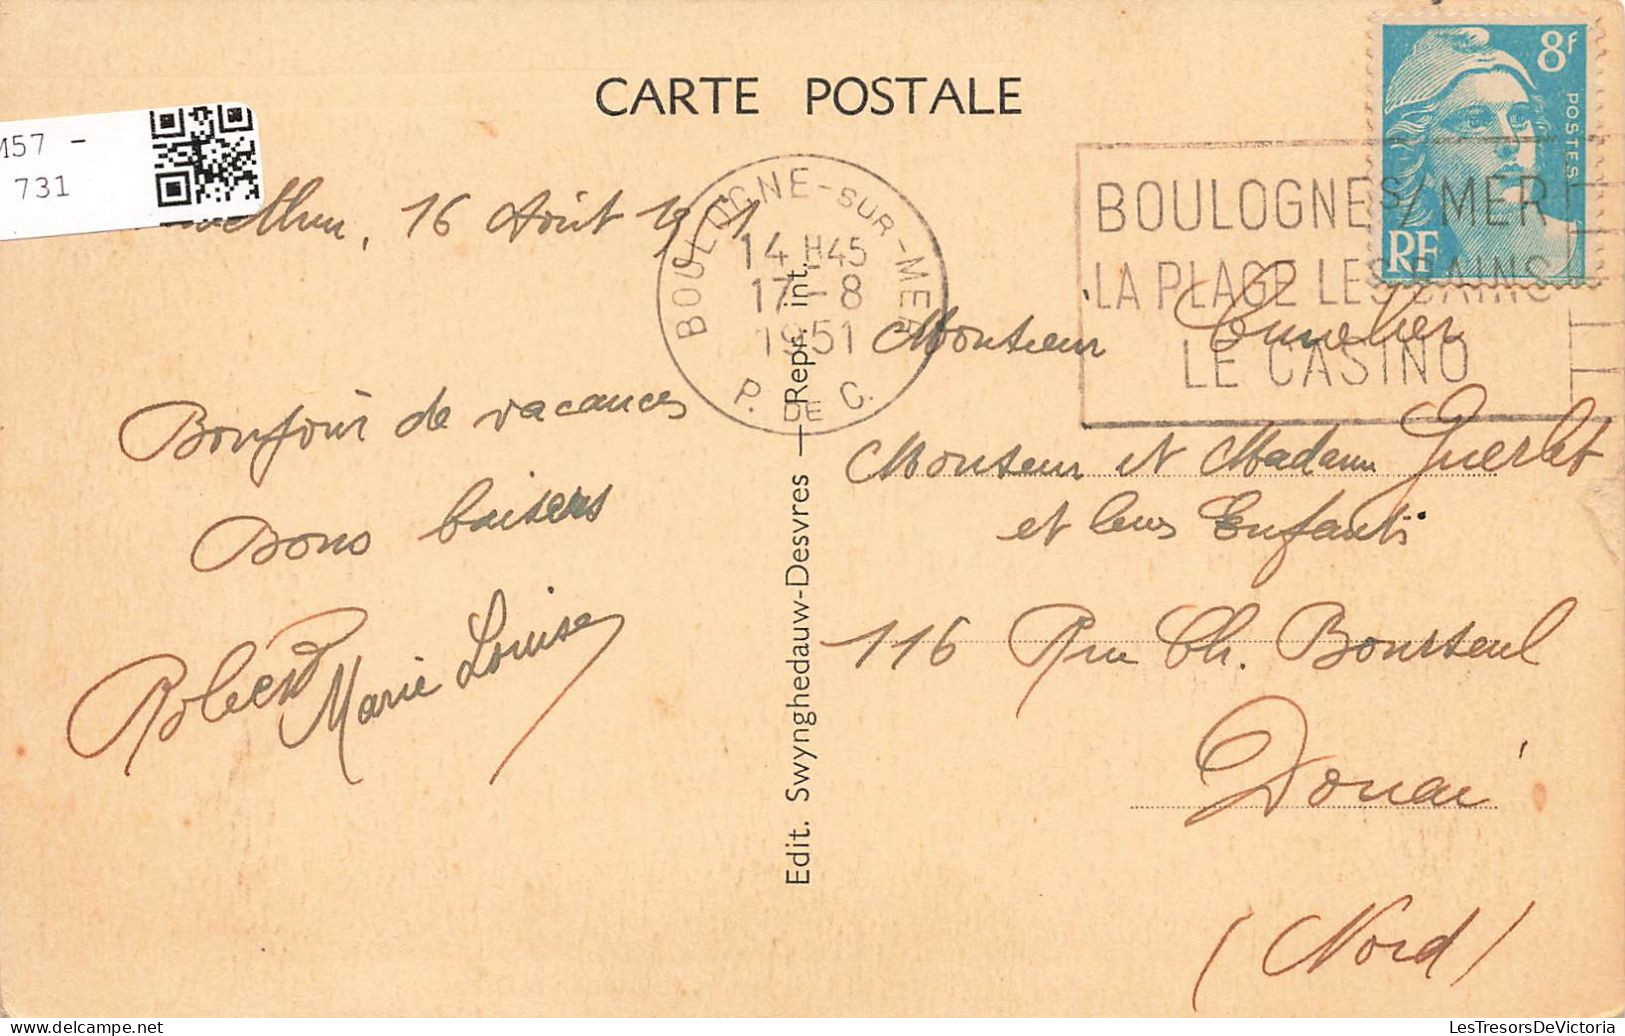 CARTE POSTALE
M57 -
731
16 Août 1951
BOULOGNE-SUR-MER
14 H45
17 - 8
1951
P. DE C.
BOULOGNE S/ MER
LA PLAGE LES BAINS
LE CASINO
8f
POSTES
RF
Bonjour de vacances
Bons baisers
Robert Marie Louise
Edit. Swynghedauw-Desvres — Repr. int.
Monsieur
Monsieur et Madame
et leurs Enfants
116 Rue Ch. Bourseul
Douai
(Nord)
LesTresorsDeVictoria
delcampe.net